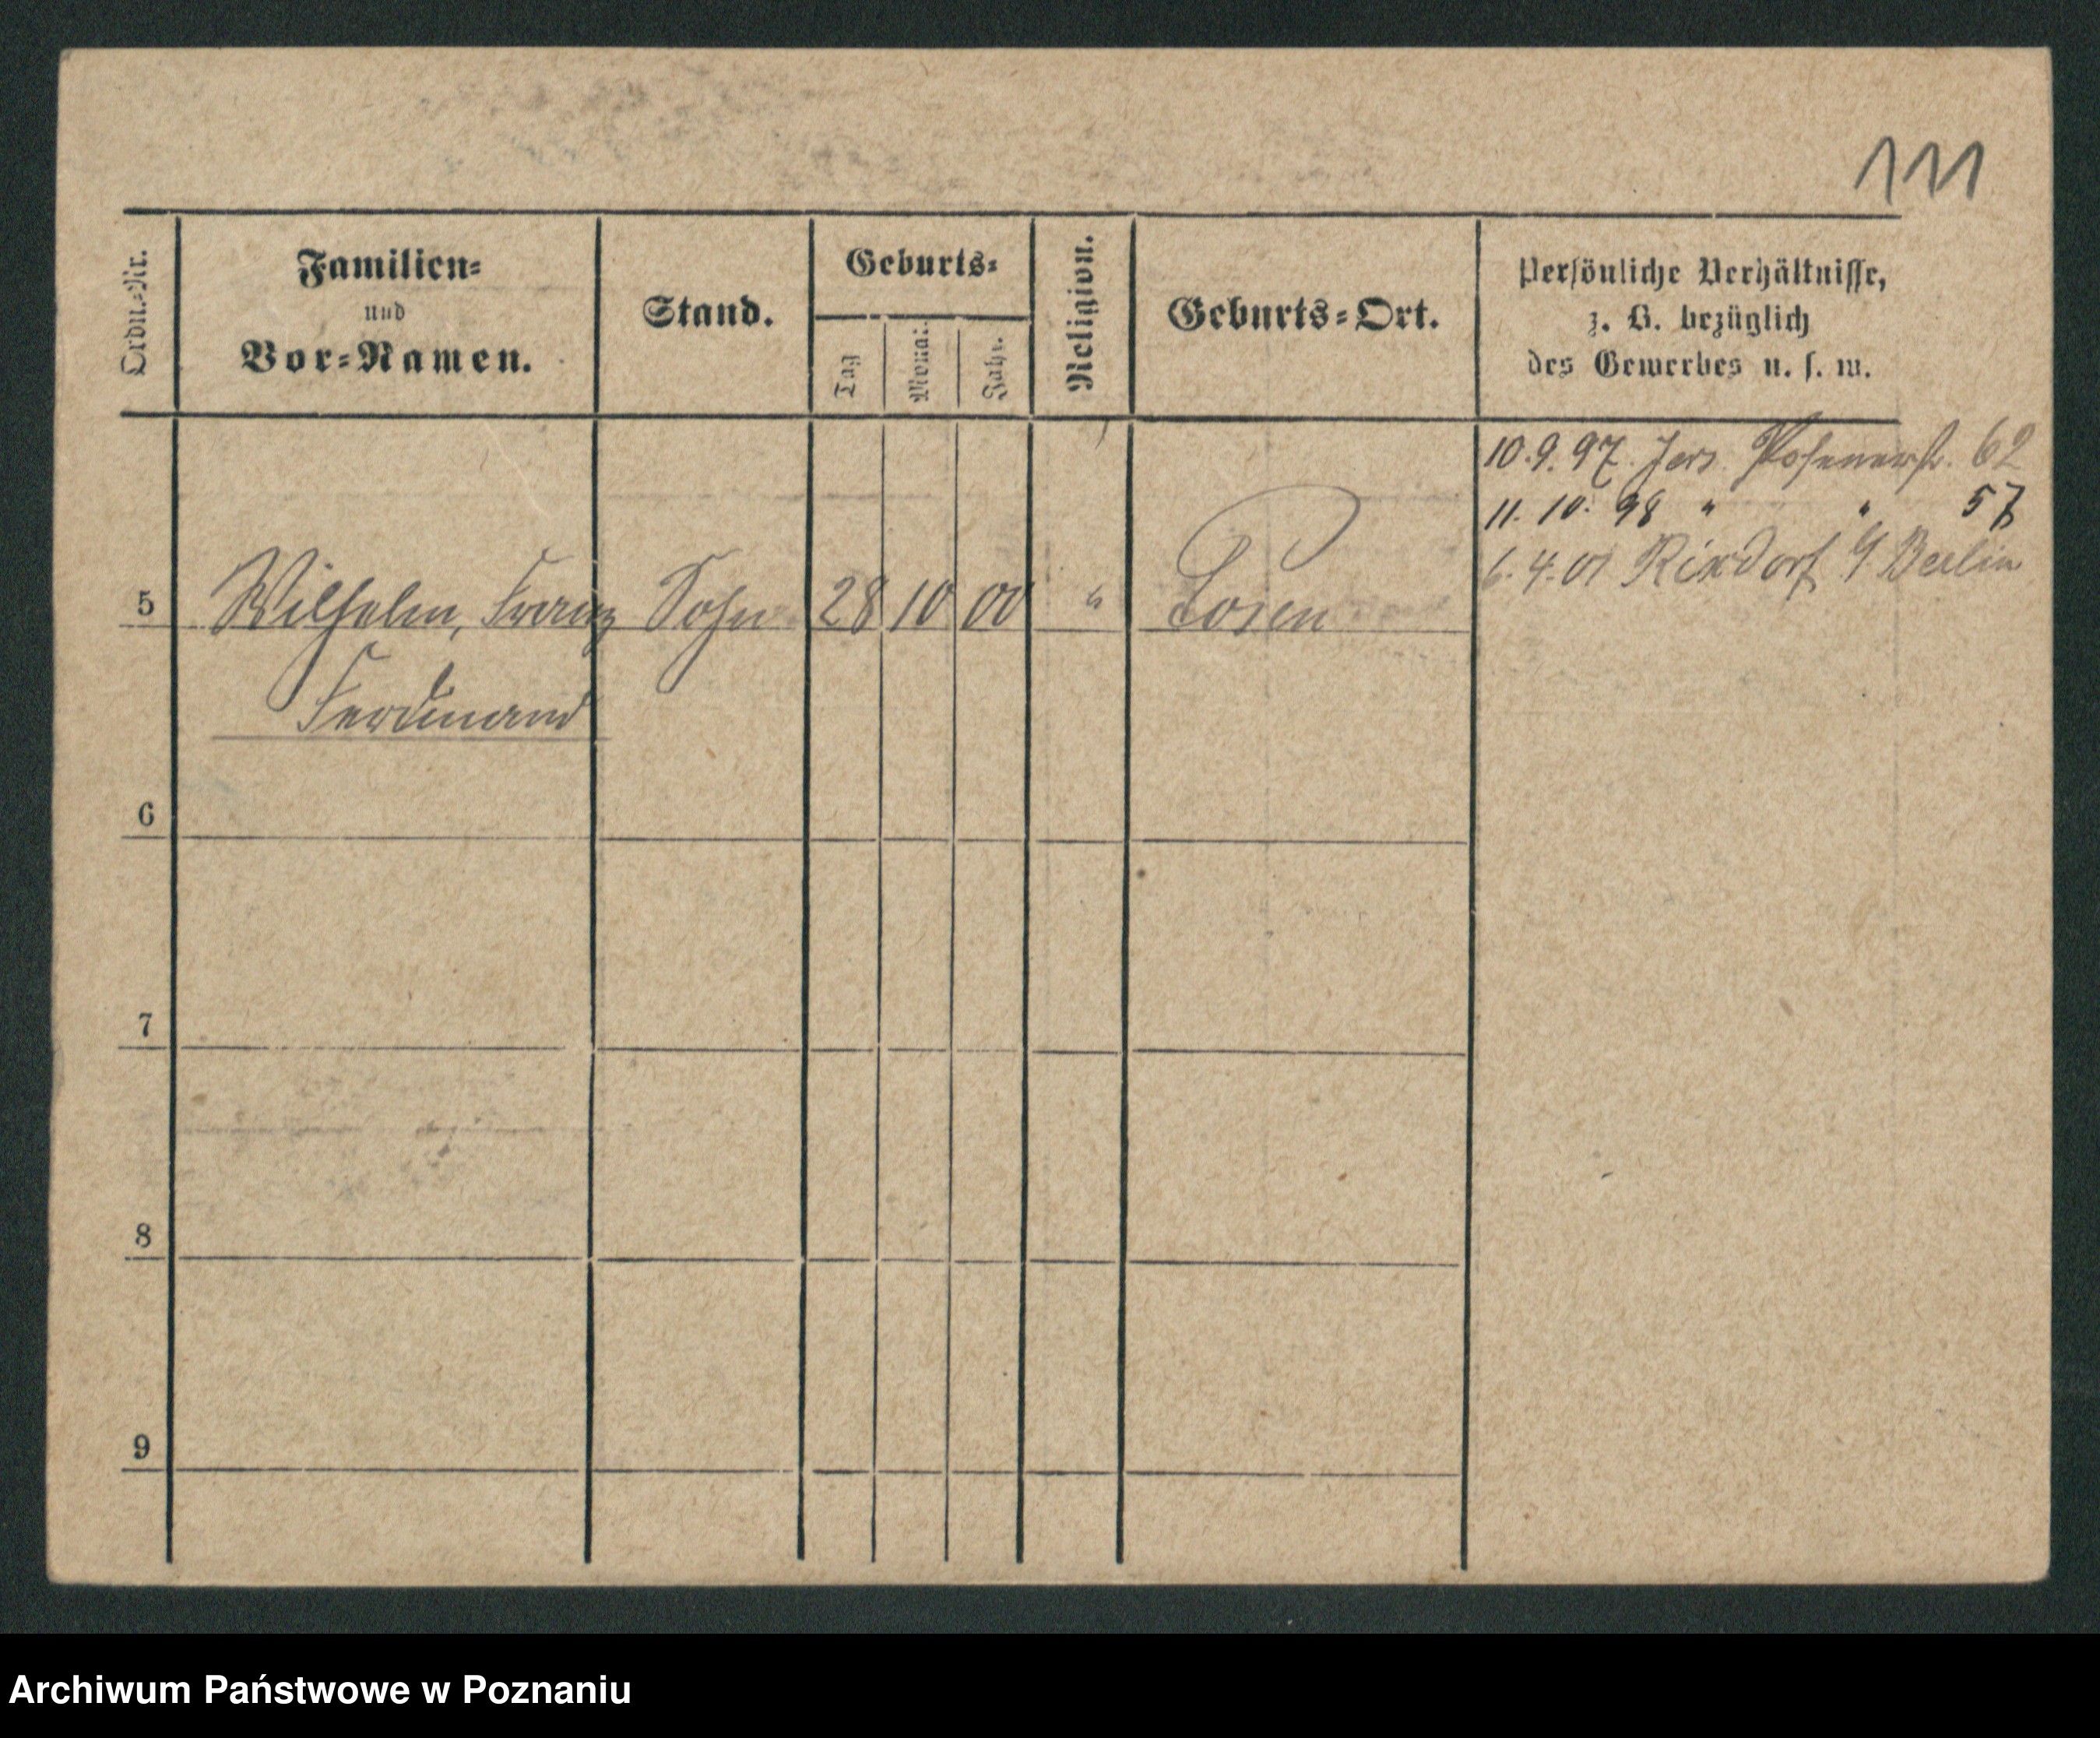 111
Ordn.-Nr.
Familien-
und
Vor-Namen.
Stand.
Geburts-
Tag
Monat
Jahr.
Religion.
Geburts-Ort.
Persönliche Verhältnisse,
z. B. bezüglich
des Gewerbes u. s. w.
10.9.97. Jers. Posenerstr. 62
11. 10. 98 " " 57
6. 4. 01 Rixdorf Berlin
5 Wilhelm, Franz Sohn 28 10 00 " Posen
Ferdinand
6
7
8
9
Archiwum Państwowe w Poznaniu